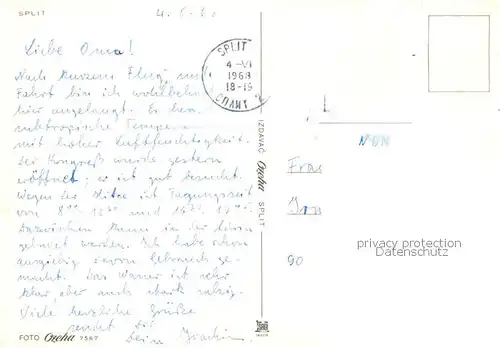 SPLIT
4.6.68
Liebe Oma!
Nach kurzem Flug und
Fahrt bin ich wohlbehalten
hier angelangt. Es herr
subtropische Tempera
mit hoher Luftfeuchtigkeit.
Der Kongreß wurde gestern
eröffnet; er ist gut besucht.
Wegen der Hitze ist Tagungszeit
von 8 12 und 16
Dazwischen kann in der Adria
gebadet werden. Ich habe schon
ausgiebig davon Gebrauch ge-
macht. Das Wasser ist sehr
klar, aber auch stark salzig.
Viele herzliche Grüße
sendet Dir
Dein Joachim
FOTO Ozeha 7587
SPLIT
4-VI
1968
18-19
СПЛИТ 2
IZDAVAČ Ozeha SPLIT
Frau
Irm
90
privacy protection
Datenschutz